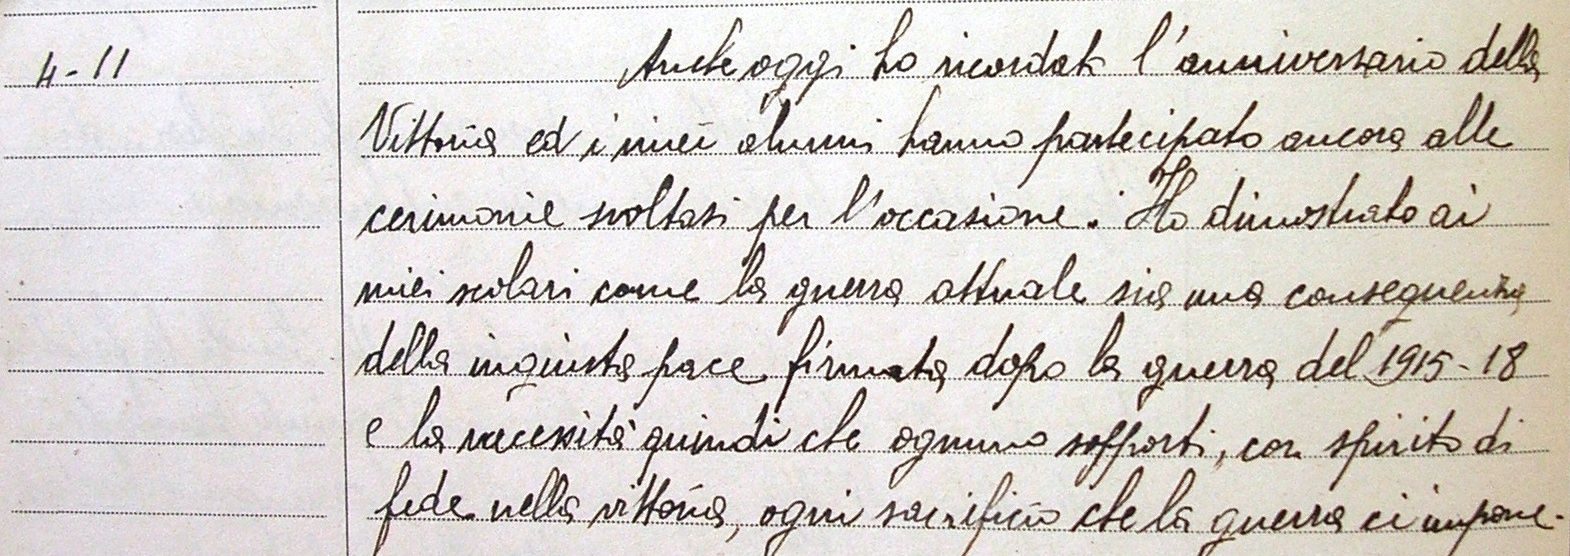 4-11
Anche oggi ho ricordato l'anniversario della
Vittoria ed i miei alunni hanno partecipato ancora alle
cerimonie svoltasi per l'occasione. Ho dimostrato ai
miei scolari come la guerra attuale sia una conseguenza
della ingiusta pace firmata dopo la guerra del 1915-18
e la necessità quindi che ognuno sopporti, con spirito di
fede nella vittoria, ogni sacrificio che la guerra ci impone.